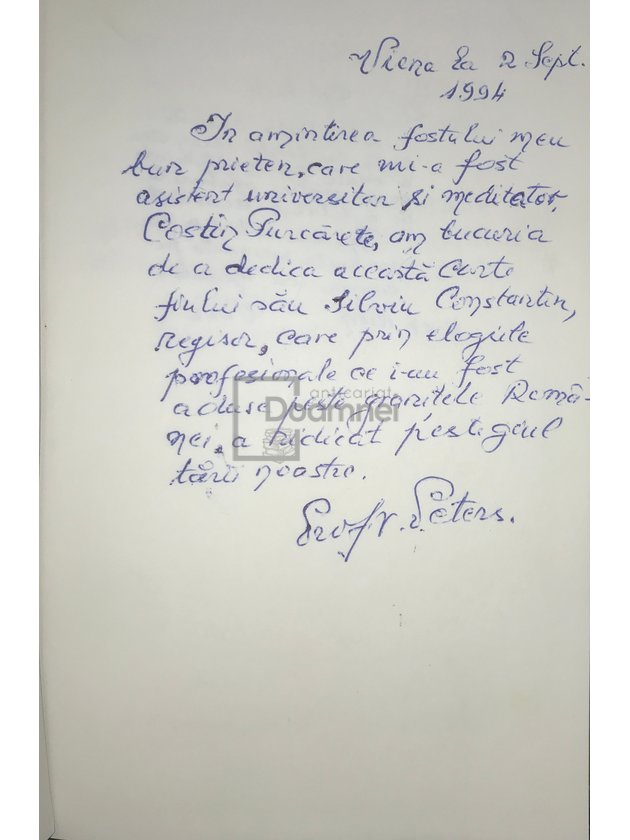 Viena la 2 Sept.
1994
In amintirea fostului meu
bun prieten, care mi-a fost
asistent universitar și meditator,
Costin Purcărete, am bucuria
de a dedica această carte
fiului său Silviu Constantin,
regisor, care prin elogiile
profesionale ce i-au fost
aduse peste granițele Româ-
niei, a ridicat prestegiul
țării noastre.
Prof. V. Peters.
anticariat
Doamnei